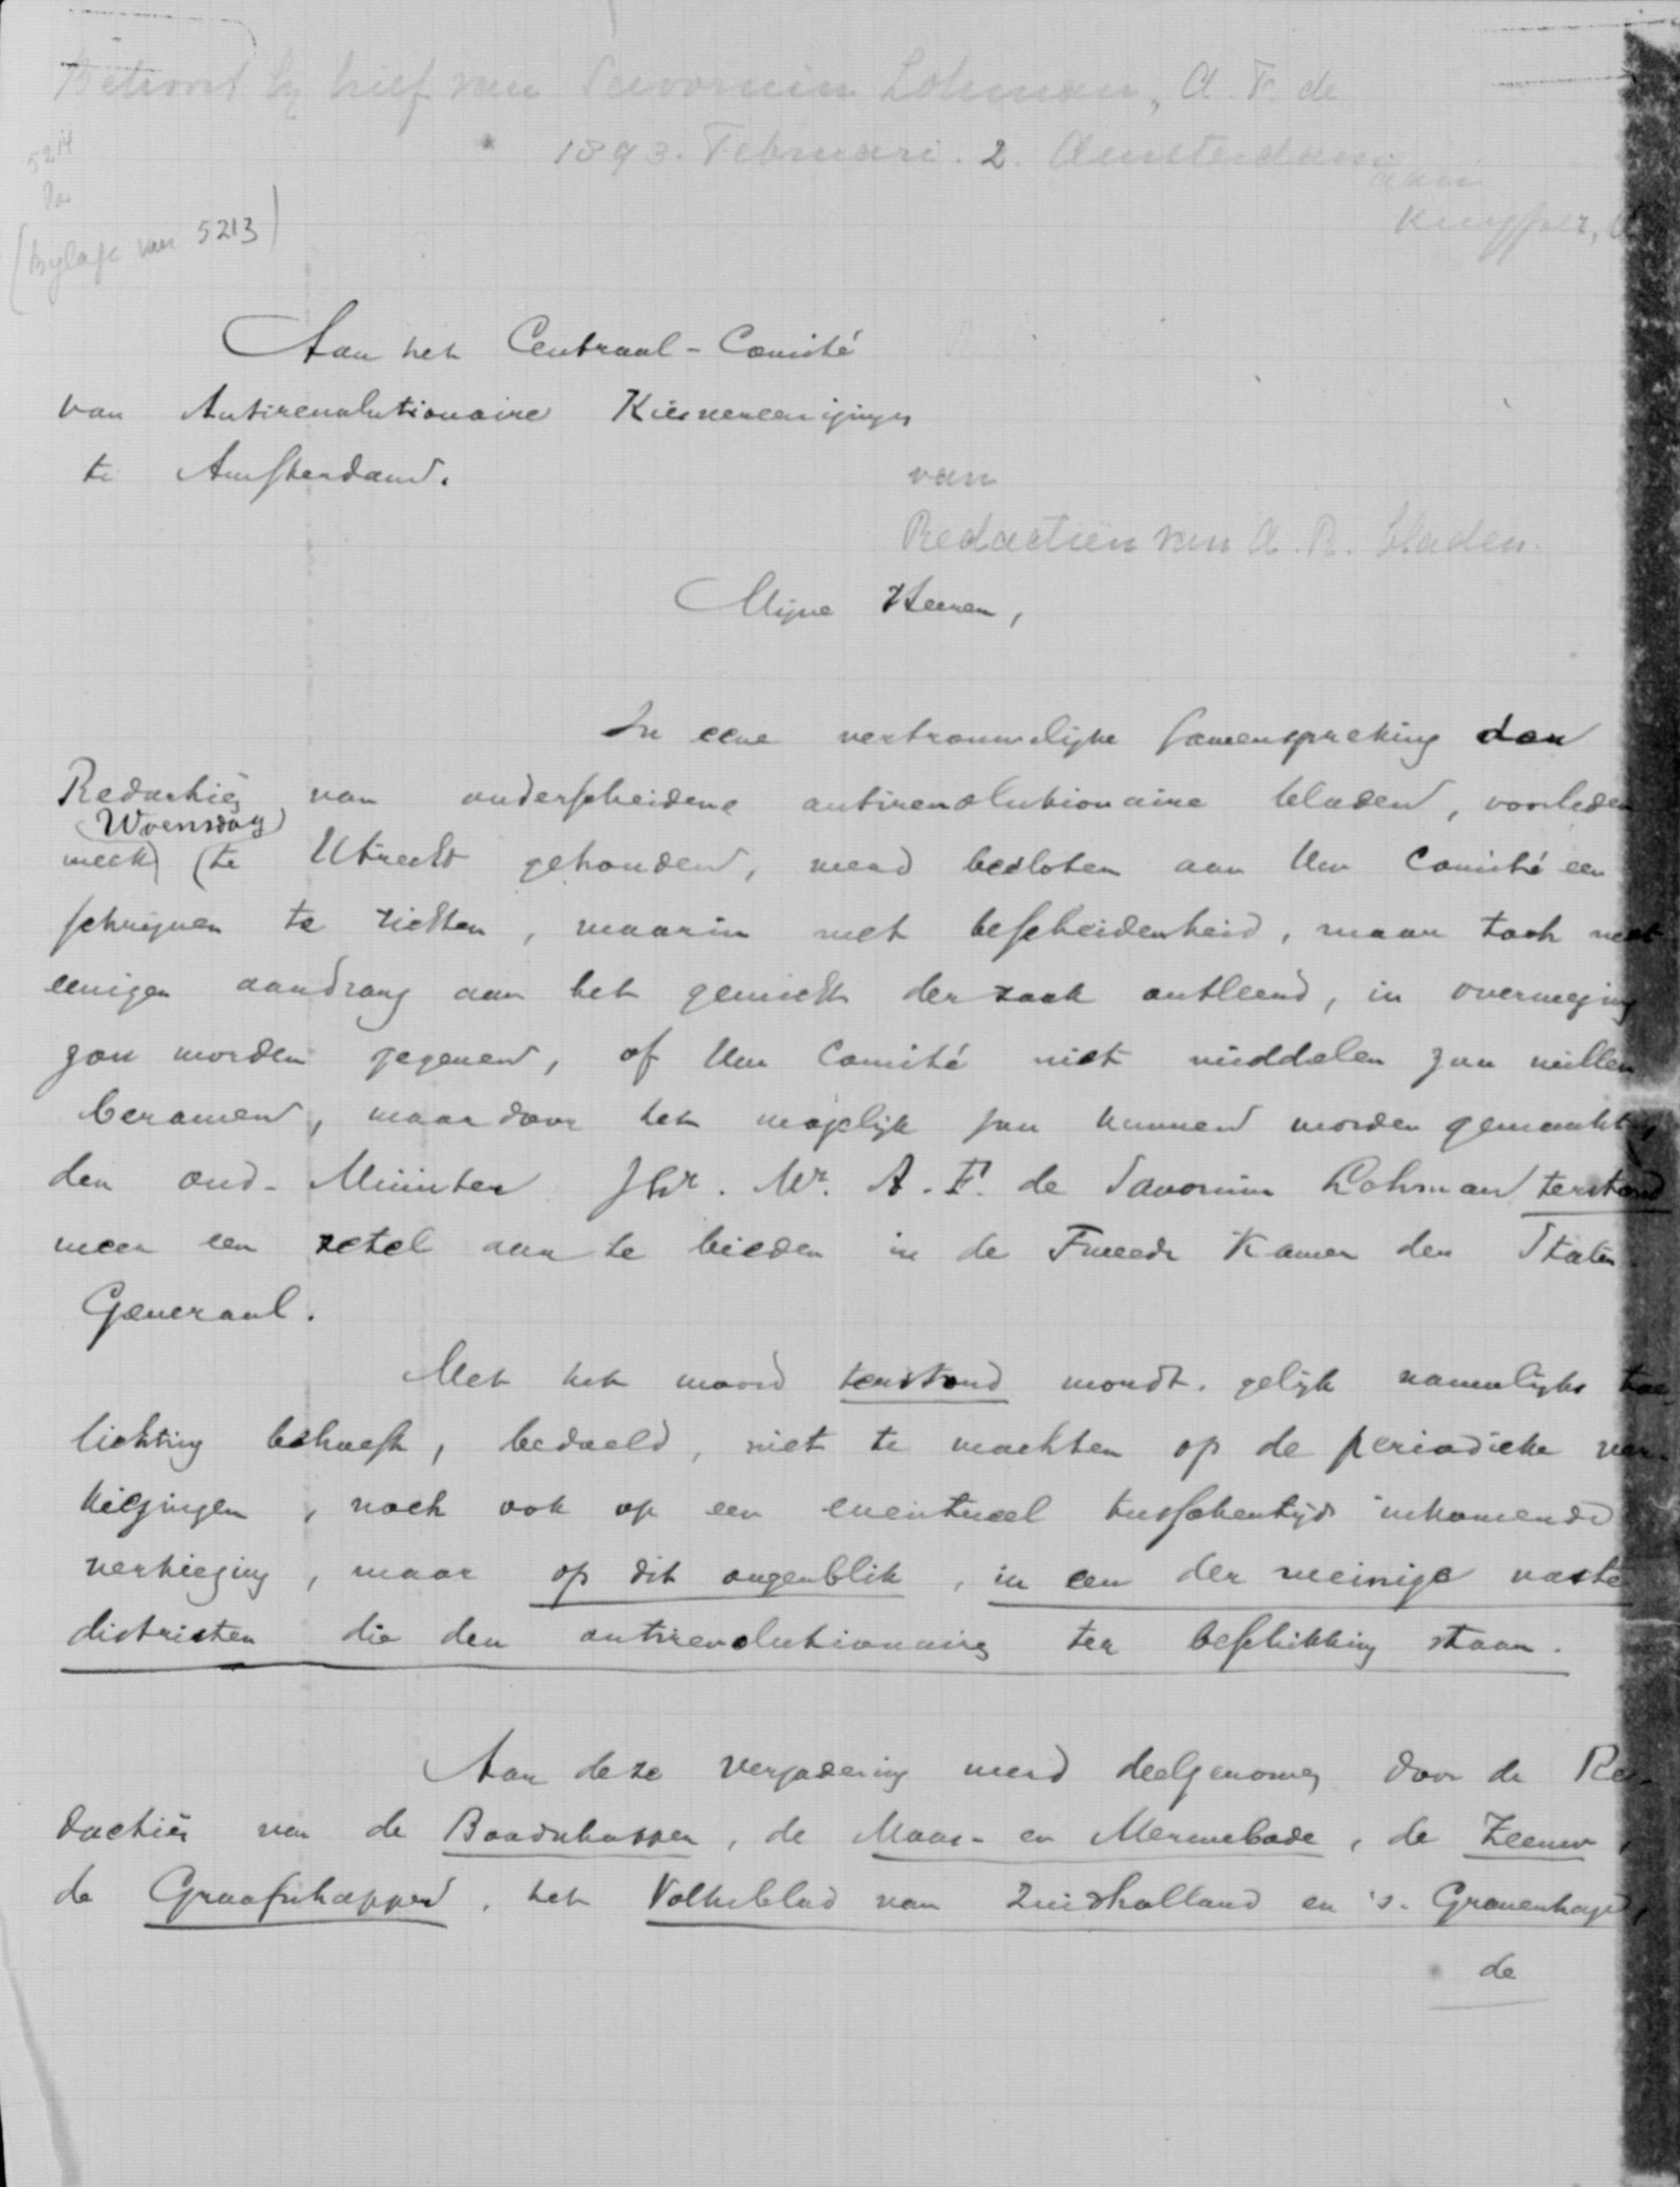 Behoort bij brief van Savornin Lohman, A. F. de
1893. Februari. 2. Amsterdam
aan
Kuyper, A
5214
(Bylage van 5213)
Aan het Centraal-Comité
van Antirevolutionaire Kiesvereenigingen
te Amsterdam.
van
Redactiën van A. R. bladen.
Mijne Heeren,
In eene vertrouwelijke samenspreking door
Redactiën van onderscheidene antirevolutionaire bladen, voorleden
Woensdag
week (te Utrecht gehouden, werd besloten aan Uw Comité een
schrijven te richten, waarin met bescheidenheid, maar toch met
eenigen aandrang aan het gewicht der zaak ontleend, in overweging
zou worden gegeven, of Uw Comité niet middelen zou willen
beramen, waardoor het mogelijk zou kunnen worden gemaakt,
den oud-Minister Jhr. Mr. A. F. de Savornin Lohman terstond
weer een zetel aan te bieden in de Tweede Kamer der Staten
Generaal.
Met het woord terstond wordt, gelijk nauwelijks toe-
lichting behoeft, bedoeld, niet te wachten op de periodieke ver-
kiezingen, noch ook op een eventueel tusschentijds inkomende
verkiezing, maar op dit oogenblik, in een der weinige vaste
districten die den antirevolutionairen ter beschikking staan.
Aan deze vergadering werd deelgenomen door de Re-
dactiën van de Boodschapper, de Maas- en Merwebode, de Zeeuw,
de Graafschapper, het Volksblad van Zuidholland en 's-Gravenhage,
de